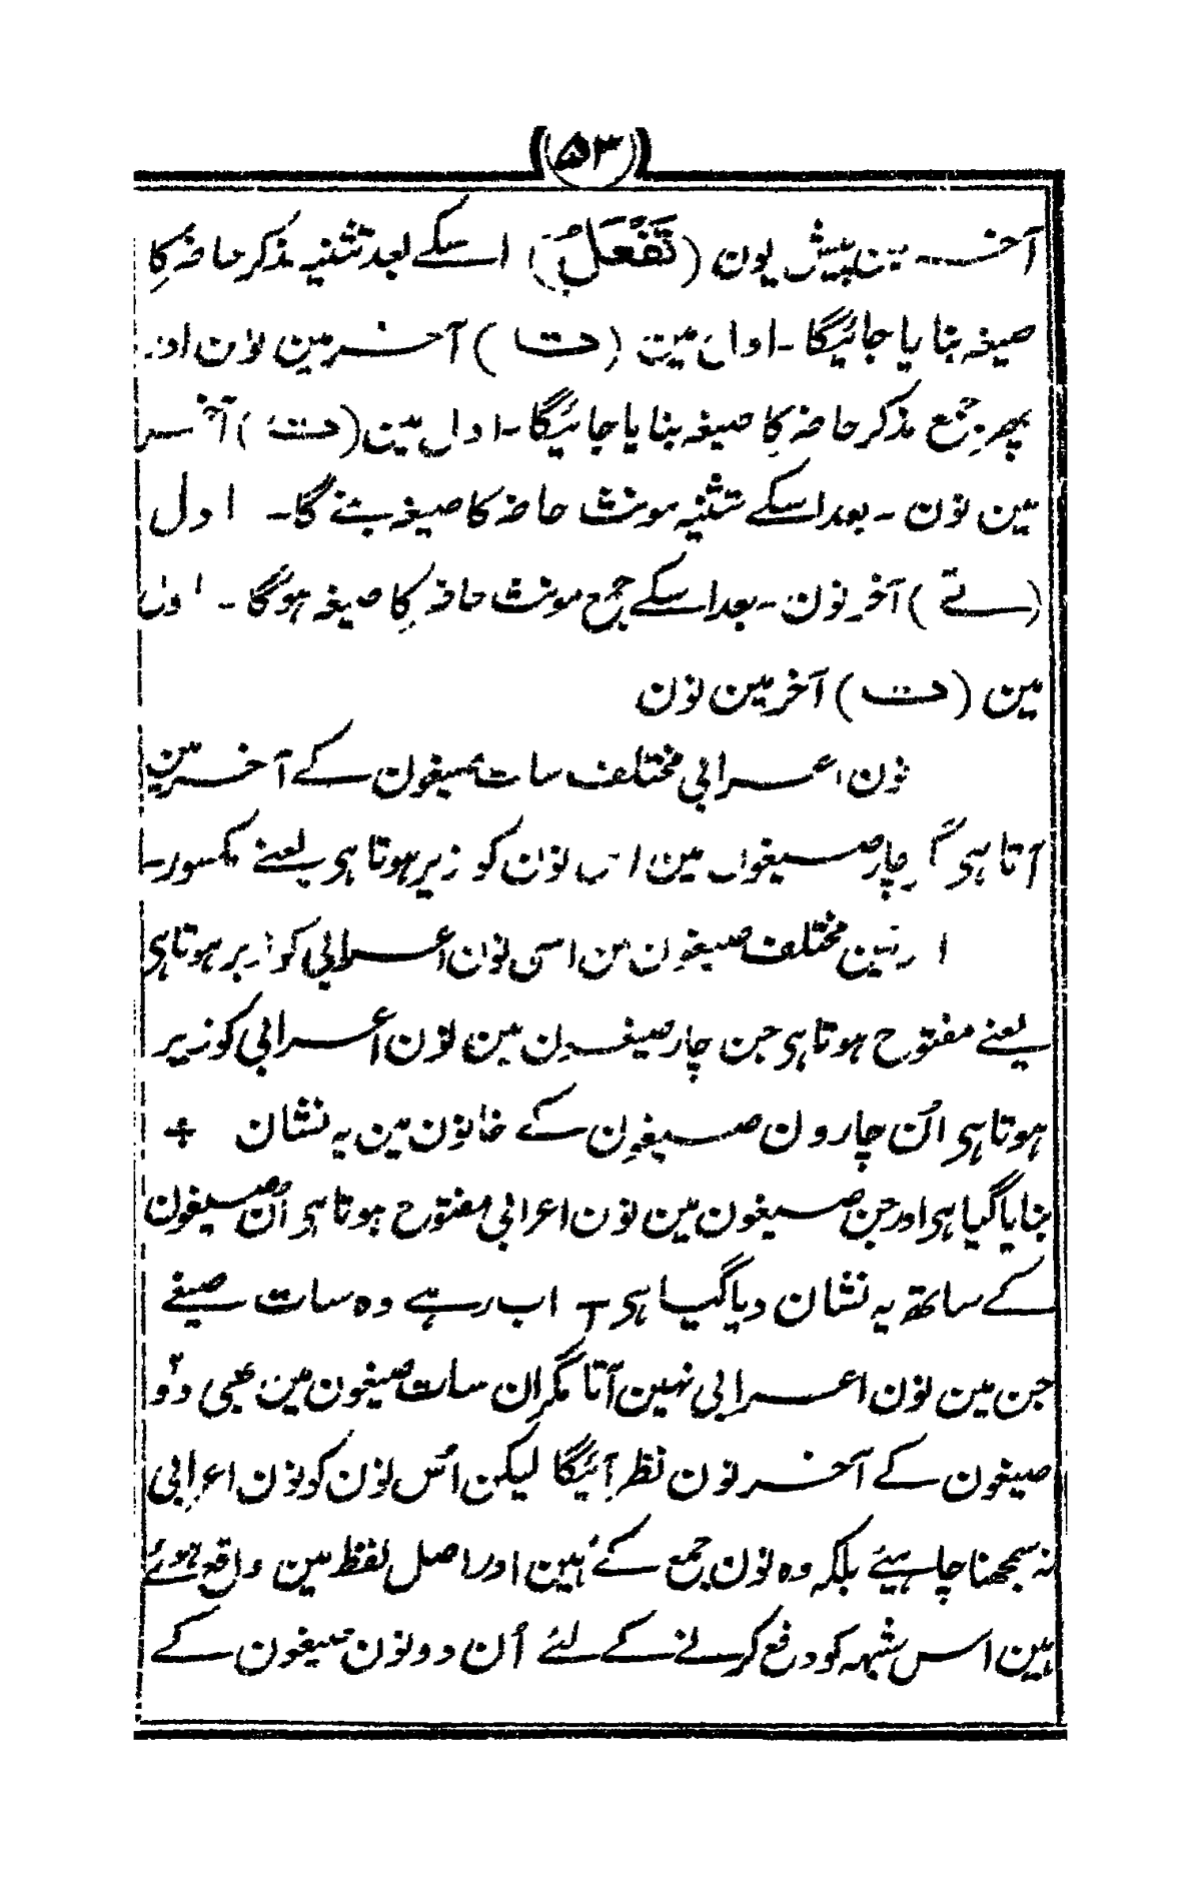 (۵۳)
آخر مین پیش یون (تَفْعَلُ) اسکے بعد تثنیہ مذکر حاضر کا
صیغہ بنایا جائیگا ۔ اول مین (ت) آخر مین نون اور
پھر جمع مذکر حاضر کا صیغہ بنایا جائیگا ۔ اول مین (ت) آخر
مین نون ۔ بعد اسکے تثنیہ مونث حاضر کا صیغہ بنے گا ۔ اول
(تے) آخر نون ۔ بعد اسکے جمع مونث حاضر کا صیغہ ہوگا ۔ اول
مین (ت) آخر مین نون
نون اعرابی مختلف سات صیغون کے آخر مین
آتا ہی مگر چار صیغون مین اس نون کو زیر ہوتا ہی یعنے مکسور ۔
اور تین مختلف صیغون مین اسی نون اعرابی کو زبر ہوتا ہی
یعنے مفتوح ہوتا ہی جن چار صیغون مین نون اعرابی کو زیر
ہوتا ہی اُن چارون صیغون کے خانون مین یہ نشان +
بنایا گیا ہی اور جن صیغون مین نون اعرابی مفتوح ہوتا ہی اُن صیغون
کے ساتھ یہ نشان دیا گیا ہی ┬ اب رہے وہ سات صیغے
جن مین نون اعرابی نہین آتا مگر ان سات صیغون مین بھی دو۲
صیغون کے آخر نون نظر آئیگا لیکن اُس نون کو نون اعرابی
نہ سمجھنا چاہیئے بلکہ وہ نون جمع کے ہین اور اصل لفظ مین واقع ہوئے
ہین اس شبہہ کو دفع کرنے کے لئے اُن دونون صیغون کے